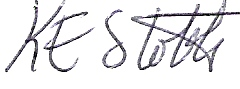 KE Stott